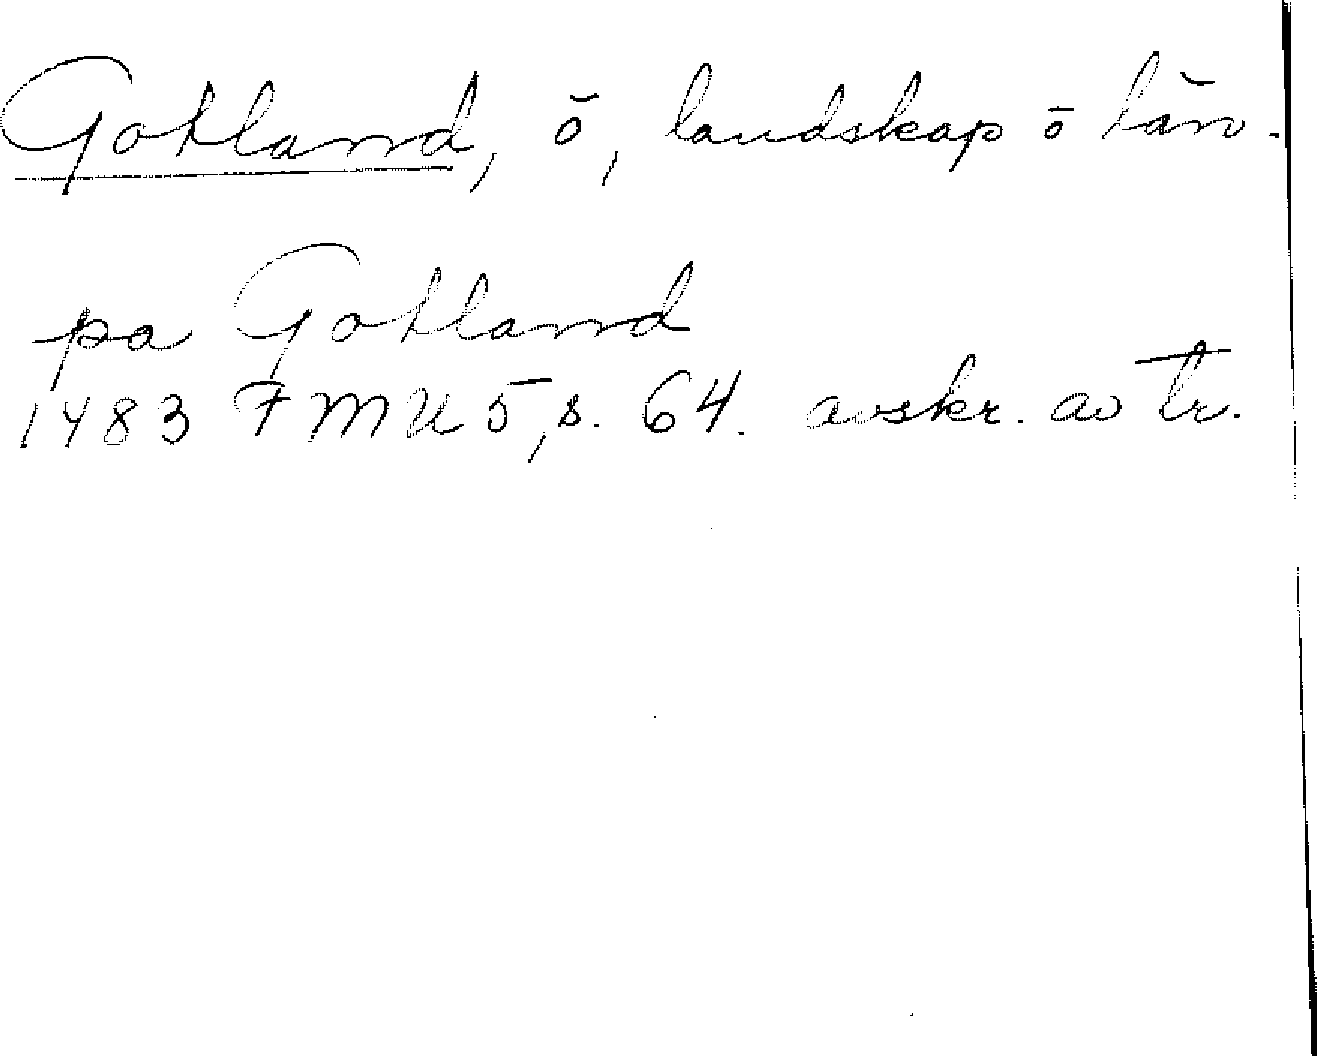 Gotland, ö, landskap ö län.
pa Gotland
1483 FMU 5, s. 64. avskr. av tr.